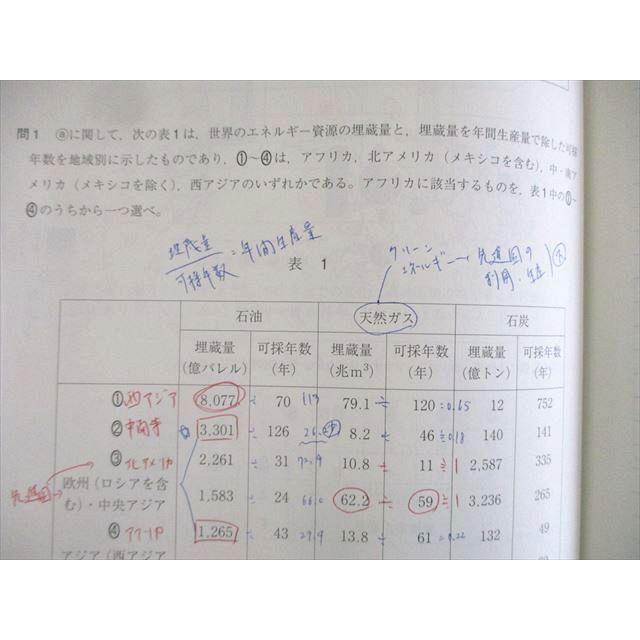 問1 ⓐに関して，次の表1は，世界のエネルギー資源の埋蔵量と，埋蔵量を年間生産量で除した可採
年数を地域別に示したものであり，①〜④は，アフリカ，北アメリカ（メキシコを含む），中・南ア
メリカ（メキシコを除く），西アジアのいずれかである。アフリカに該当するものを，表1中の①〜
④のうちから一つ選べ。
埋蔵量
可採年数
=年間生産量
クリーン
エネルギー→先進国の
利用・生産
表 1
石油 天然ガス 石炭
埋蔵量 可採年数 埋蔵量 可採年数 埋蔵量 可採年数
(億バレル) (年) (兆m³) (年) (億トン) (年)
①西アジア 8,077 ÷ 70 115 79.1 ÷ 120 ≒0.65 12 752
②中南米 3,301 ÷ 126 8.2 ÷ 46 ≒0.18 140 141
③北アメリカ 2,261 ÷ 31 72.9 10.8 ÷ 11 ≒1 2,587 335
先進国
欧州（ロシアを含
む）・中央アジア 1,583 ÷ 24 66.0 62.2 ÷ 59 ≒1 3,236 265
④アフリカ 1,265 ÷ 43 29.4 13.8 ÷ 61 ≒0.22 132 49
アジア（西アジア